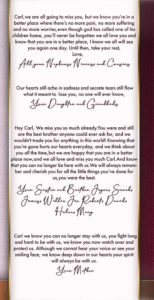 Carl, we are all going to miss you, but we know you're in a
better place where there's no more pain, no more suffering
and no more worries, even though god has called one of his
children home, you'll never be forgotten we all love you and
know that you are in a better place, I know we all will see
you again one day. Until then, take your rest,
Love,
All your Nephews Nieces and Cousins
Our hearts still ache in sadness and secrets tears still flow
what it meant to lose you, no one will ever know,
Your Daughter and Grandkids
Hey Carl, We miss you so much already You were and still
are the best brother anyone could ever ask for, and we
wouldn't trade you for anything in this world! Knowing that
you're gone hurts our hearts everyday, and we think about
you all the time, but we are happy that you are in a better
place now, and we all love and miss you much Carl. And know
that you can no longer be here with us We will always remem-
ber and cherish you for all the little things you've done for
us, you were the best.
Your Sister and Brother Joyce
Jr. Roberts
Helena Mary
Carl we know you can no longer stay with us, you fight long
and hard to be with us, we know you now watch over and
protect us. Although we cannot hear your voice or see your
smiling face, we know deep down in our hearts your spirit
will always be with us.
Your Mother